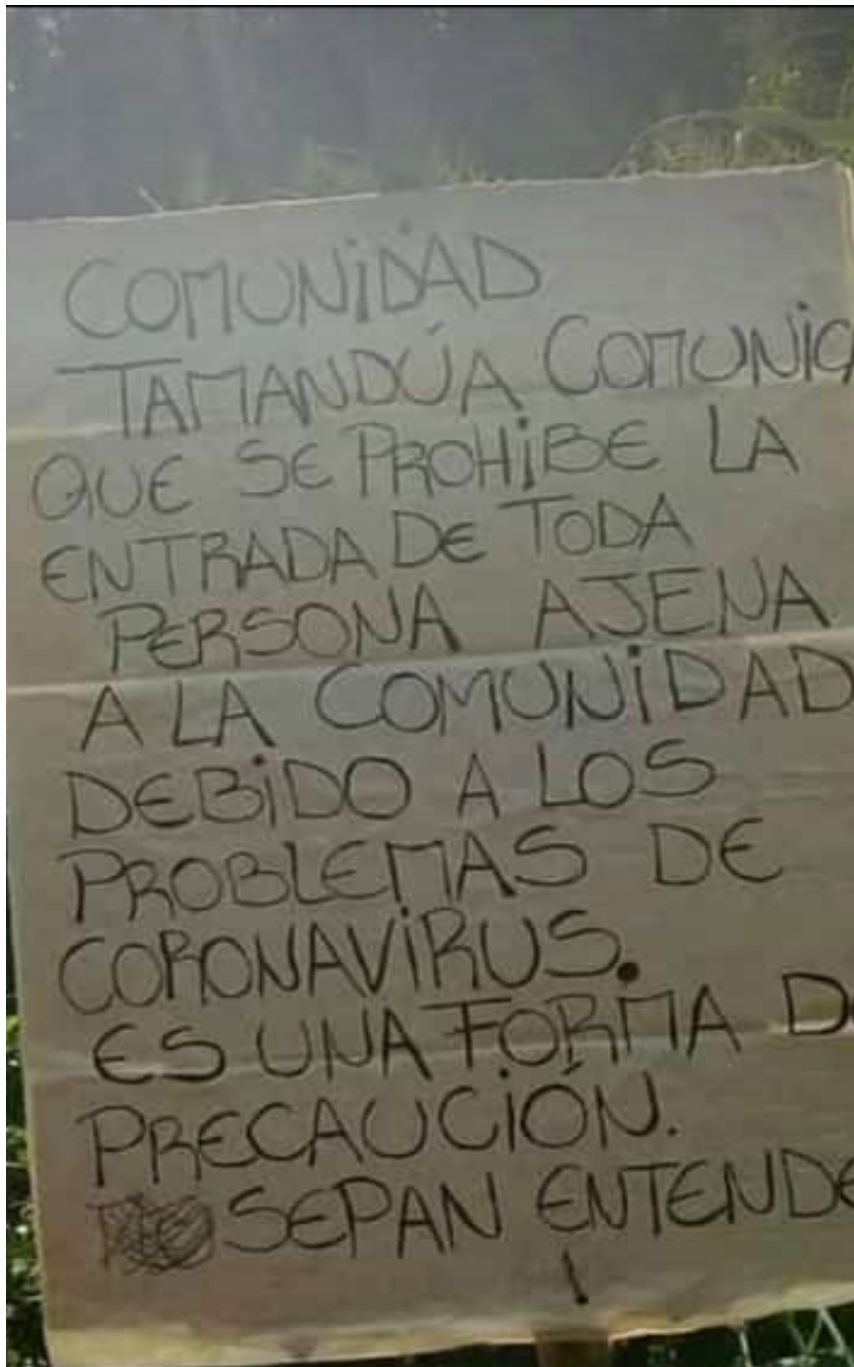 COMUNIDAD
TAMANDÚA COMUNIC
QUE SE PROHIBE LA
ENTRADA DE TODA
PERSONA AJENA
A LA COMUNIDAD
DEBIDO A LOS
PROBLEMAS DE
CORONAVIRUS.
ES UNA FORMA DE
PRECAUCIÓN.
SEPAN ENTENDE
!